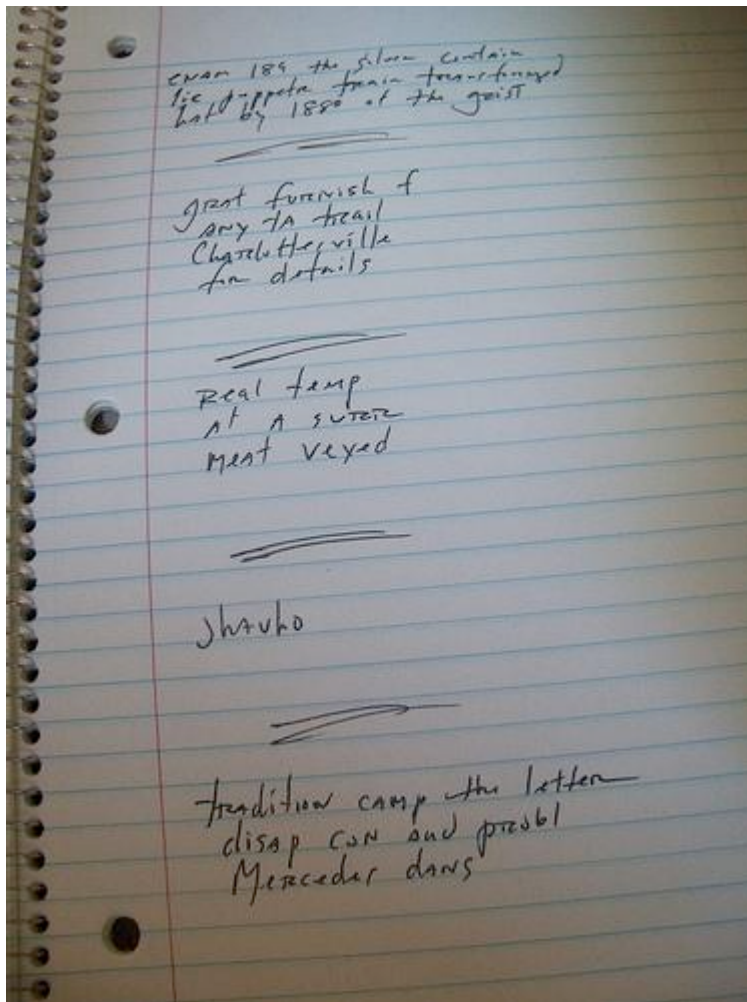 enam 189 the silver contain
lie puppets train transformed
hat by 1880 of the geist
grat furnish f
any ta trail
Charlottesville
for details
Real temp
at a surer
meat veyed
Jhauho
tradition camp the letter
disap con and probl
Mercedes dans